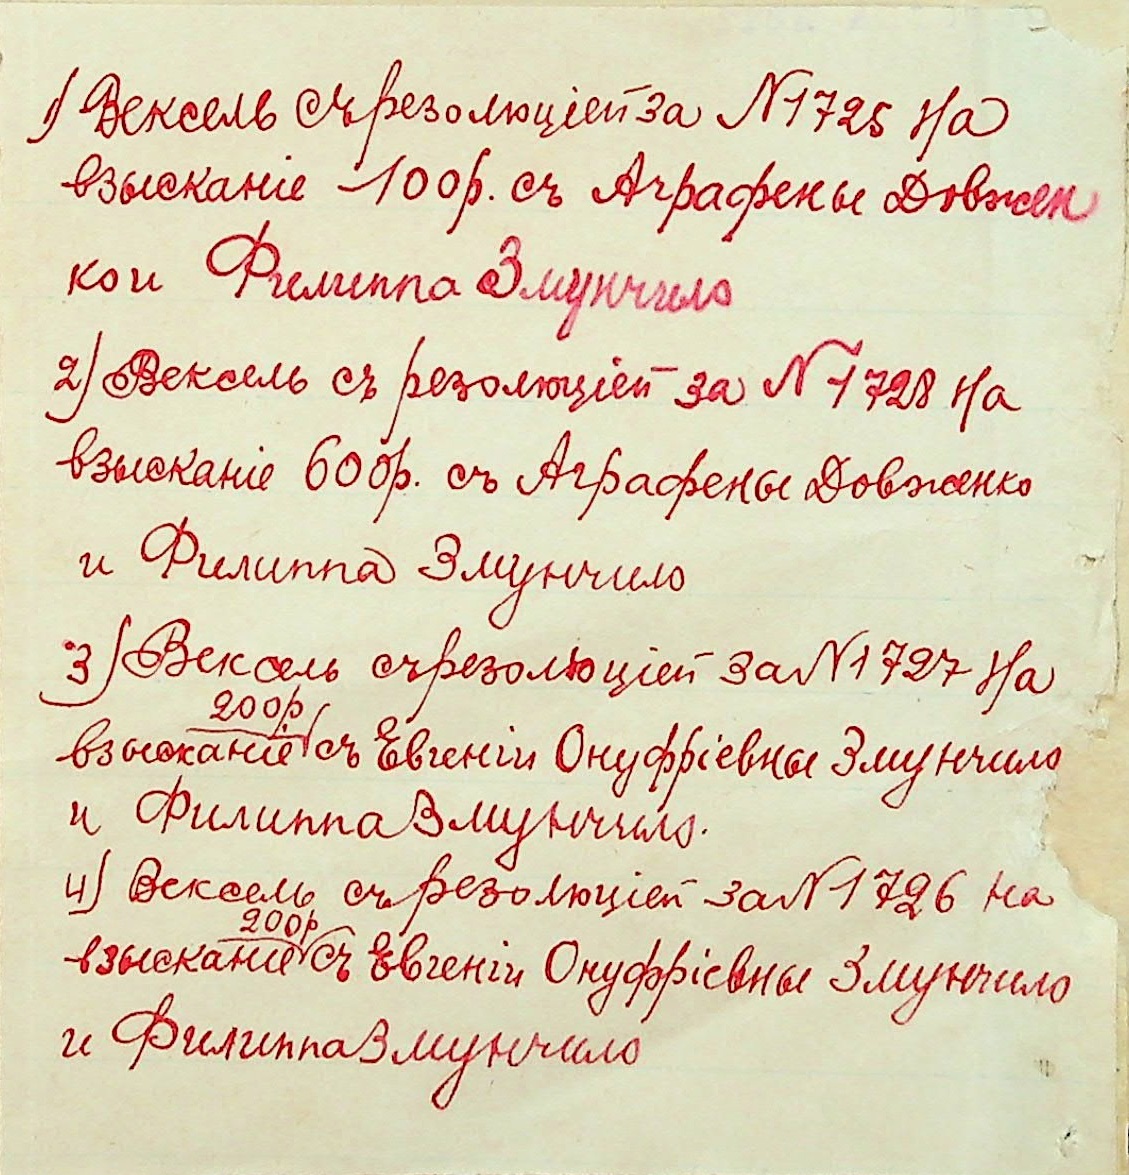 1) Вексель съ резолюціей за N 1725 на
взысканіе 100р. съ Аграфены Довжен
ко и Филиппа Змунчило
2) Вексель съ резолюціей за N 1728 на
взысканіе 600р. съ Аграфены Довженко
и Филиппа Змунчило
3) Вексель съ резолюціей за N 1727 на
200р.
взысканіе съ Евгеніи Онуфріевны Змунчило
и Филиппа Змунчило.
4) Вексель съ резолюціей за N 1726 на
200р
взысканіе съ Евгеніи Онуфріевны Змунчило
и Филиппа Змунчило